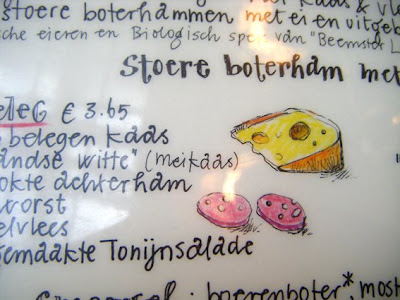 kaas & vl
stoere boterhammen met ei en uitgeb
sche eieren en Biologisch spe van "Beemster L
Stoere boterham met
eleg € 3.65
belegen kaas
andse witte" (meikaas)
okte achterham
worst
elvlees
emaakte Tonijnsalade
boerenboter*, most